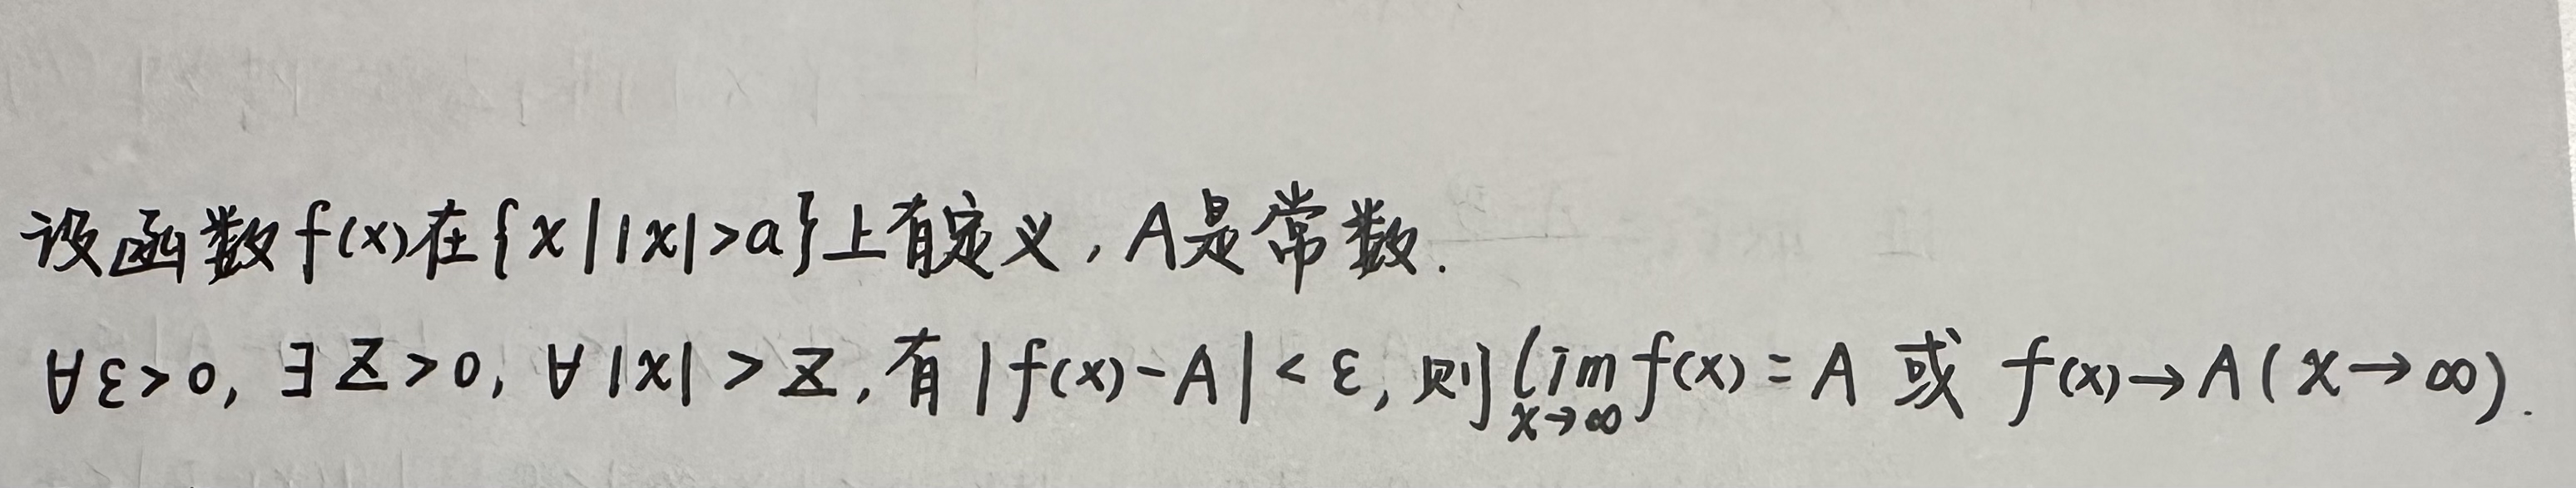 设函数f(x)在{x||x|>a}上有定义,A是常数.
∀ε>0,∃Z>0,∀|x|>Z,有|f(x)-A|<ε,则lim_{x→∞}f(x)=A 或 f(x)→A(x→∞).